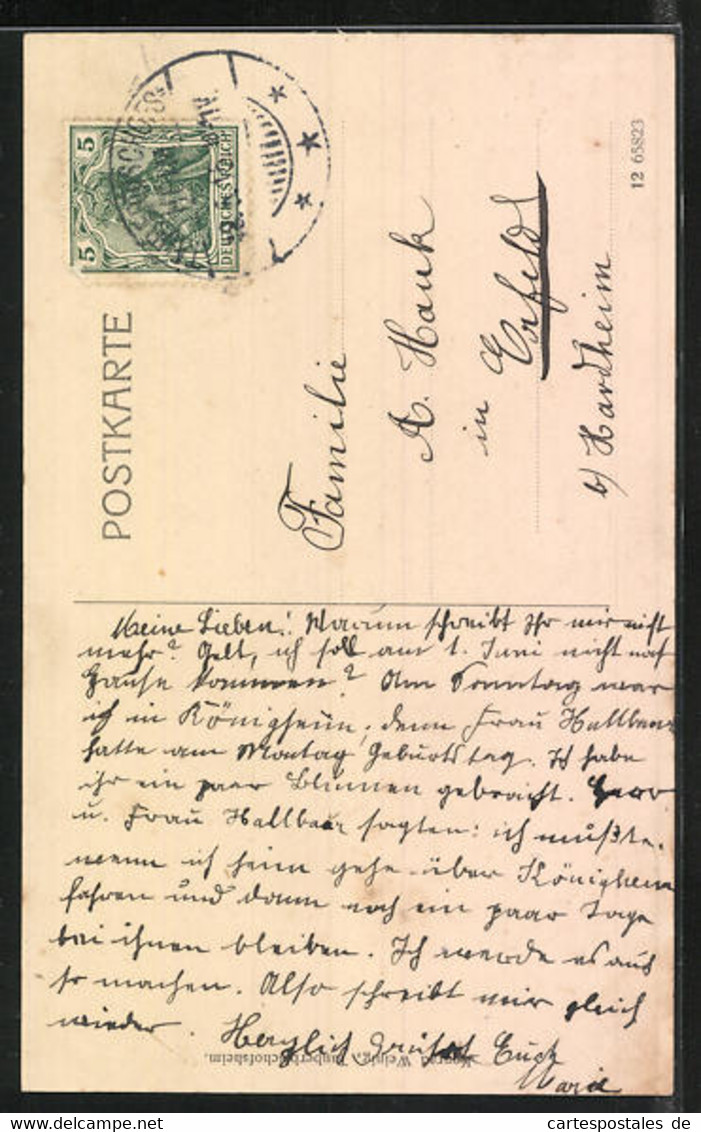 POSTKARTE
5
5
DEUTSCHES REICH
12 65823
Familie
A. Hauk
in Erfeld
b/ Hardheim
Meine Lieben! Warum schreibt Ihr mir nicht
mehr? Gelt, ich soll am 1. Juni nicht nach
Hause kommen? Am Sonntag war
ich in Königheim, denn Frau Hallbaur
hatte am Montag Geburtstag. Ich habe
ihr ein paar Blumen gebracht. Herr
u. Frau Hallbaur sagten: ich müßte,
wenn ich heim gehe über Königheim
fahren und dann noch ein paar Tage
bei ihnen bleiben. Ich werde es auch
so machen. Also schreibt mir gleich
wieder. Herzlich grüßt Euch
Marie
Weinig, Tauberbischofsheim.
cartespostales de
www.delcampe.net